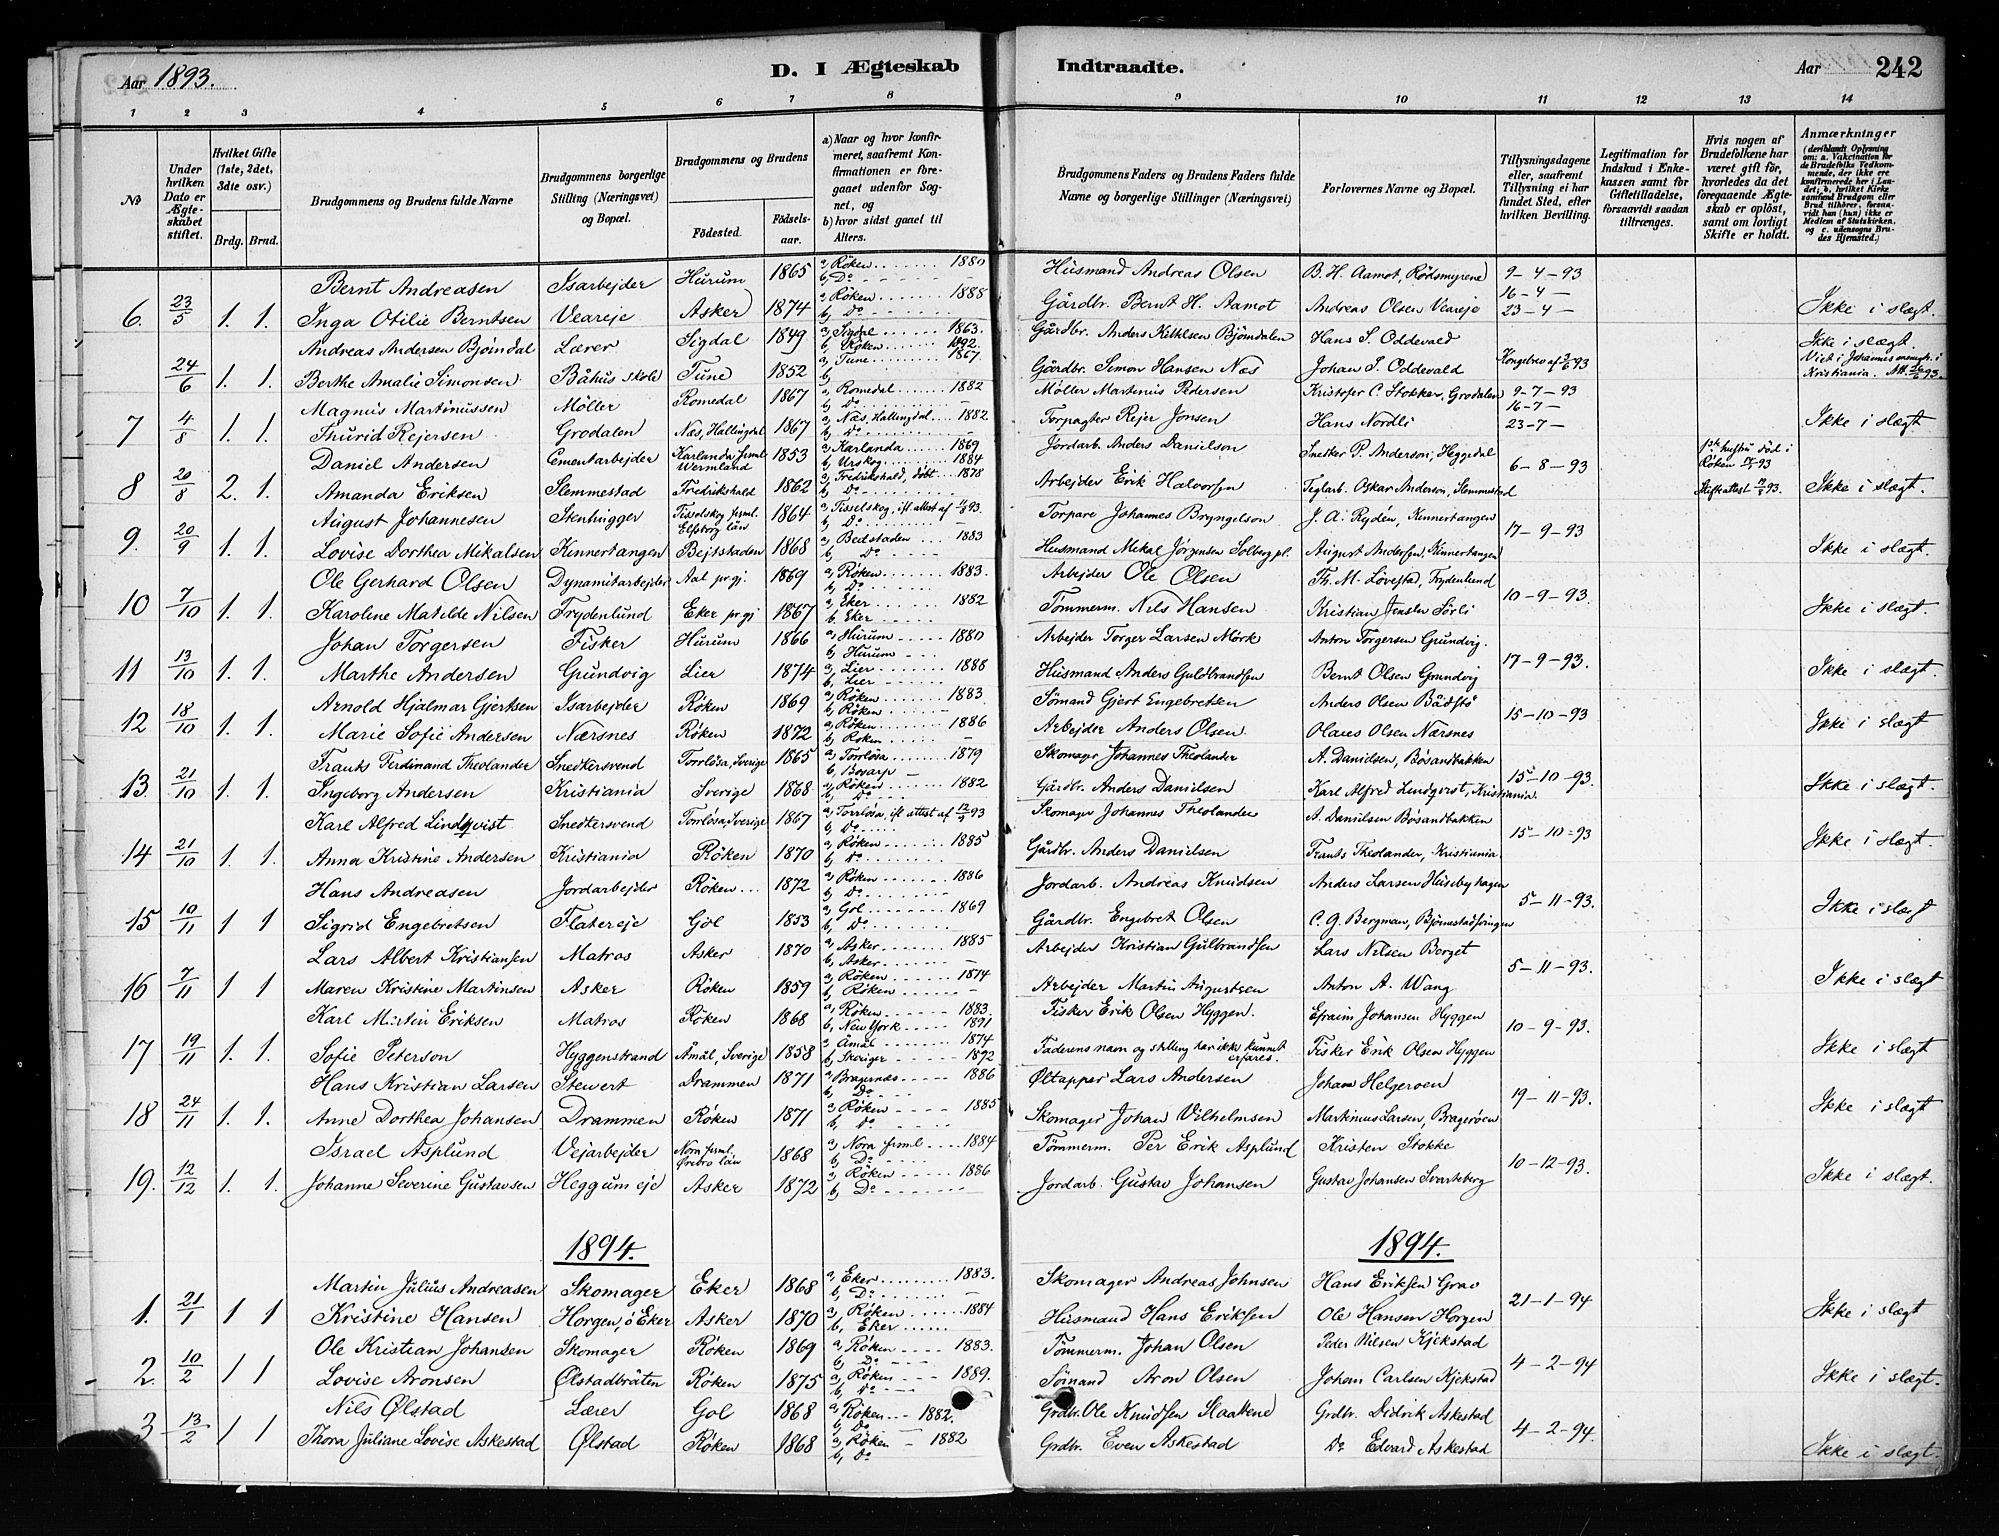 Aar 1893.
D. I Ægteskab
Indtraadte.
Aar
242
1 2 3 4 5 6 7 8 9 10 11 12 13 14
№
Under hvilken Dato er Ægteskabet stiftet.
Hvilket Gifte (1ste, 2det, 3dte osv.)
Brdg. Brud.
Brudgommens og Brudens fulde Navne
Brudgommens borgerlige Stilling (Næringsvei) og Bopæl.
Brudgommens og Brudens
Fødested.
Fødselsaar.
a) Naar og hvor konfirmeret, saafremt Konfirmationen er foregaaet udenfor Sognet, og
b) hvor sidst gaaet til Alters.
Brudgommens Faders og Brudens Faders fulde Navne og borgerlige Stillinger (Næringsvei)
Forlovernes Navne og Bopæl.
Tillysningsdagene eller, saafremt Tillysning ei har fundet Sted, efter hvilken Bevilling.
Legitimation for Indskud i Enkekassen samt for Giftetilladelse, forsaavidt saadan tiltrænges.
Hvis nogen af Brudefolkene har været gift før, hvorledes da det foregaaende Ægteskab er opløst, samt om lovligt Skifte er holdt.
Anmærkninger (deriblandt Oplysning om: a. Vakcination for de Brudefolks Vedkommende, der ikke ere konfirmerede her i Landet; b. hvilket Kirkesamfund Brudgom eller Brud tilhører, forsaavidt han (hun) ikke er Medlem af Statskirken. og c. udensogns Brudes Hjemsted.)
Bernt Andreasen Isarbejder Hurum 1865 a, Røken 1880 b, Do Husmand Andreas Olsen B. H. Aamot, Rødsmyrene 9-4-93
6. 23/5 1. 1. Inga Otilie Berntsen Veareje Asker 1874 a, Røken 1888 b, Do Gårdbr. Bernt H. Aamot Andreas Olsen Veareje 16-4- 23-4- Ikke i slægt.
Andreas Andersen Bjørndal Lærer Sigdal 1849 a, Sigdal 1863. b, Røken 1892. Gårdbr. Anders Kittelsen Bjørndalen Hans S. Oddevald Ikke i slægt.
24/6 1. 1. Berthe Amalie Simonsen Båhus skole Tune 1852 a, Tune 1867. b, Gårdbr. Simon Hansen Næs Johan S. Oddevald Kongebrev af 93 Viet i Johannes menigh. i Kristiania. Att. 93.
Magnus Martinussen Møller Romedal 1867 a, Romedal 1882 b, Do Møller Martinus Pedersen Kristofer C. Stokker, Grodalen 9-7-93
7 4/8 1. 1. Thurid Rejersen Grodalen Næs, Hallingdal 1867 a, Næs, Hallingdal 1882 b, Do Forpagter Rejer Jonsen Hans Nordli 16-7- 23-7- Ikke i slægt
Daniel Andersen Cementarbejder Karlanda frml. Wermland 1853 a, Karlanda 1869 b, Urskog 1884 Jordarb. Anders Danielson Snedker P. Anderson, Heggedal 6-8-93 1ste hustru død i Røken 93
8 20/8 2. 1. Amanda Eriksen Slemmestad Fredrikshald 1862 a, Fredrikshald, døbt 1878 b, Do Arbejder Erik Halvorsen Teglarb. Oskar Anderson, Slemmestad Skifteattest 93. Ikke i slægt.
August Johannesen Stenhugger Tisselskog frml. Elfsborg län 1864 a, Tisselskog, ifl. attest af 93. b, Do Torpare Johannes Bryngelson J. A. Rydén, Kinnertangen 17-9-93
9. 20/9 1. 1. Lovise Dorthea Mikalsen Kinnertangen Bejtstaden 1868 a, Bedstaden 1883 b, Do Husmand Mikal Jörgensen Solberg pl. August Andersen, Kinnertangen Ikke i slægt.
Ole Gerhard Olsen Dynamitarbejder Aal prgj. 1869 a, Røken 1883. b, Do Arbejder Ole Olsen Th. M. Lövestad, Frydenlund
10 7/10 1. 1. Karoline Matilde Nilsen Frydenlund Eker prgj 1867 a, Eker 1882 b, Eker Tømmerm. Nils Hansen Kristian Jensen Sörli 10-9-93. Ikke i slægt.
Johan Torgersen Fisker Hurum 1866 a, Hurum 1880 b, Hurum Arbejder Torger Larsen Mörk Anton Torgersen Grundvig.
11 13/10 1. 1. Marthe Andersen Grundvig Lier 1874 a, Lier 1888 b, Lier Husmand Anders Guldbrandsen Bernt Olsen Grundvig 17-9-93. Ikke i slægt.
Arnold Hjalmar Gjertsen Isarbejder Røken 1869 a, Røken 1883 b, Røken Sömand Gjert Engebretsen Anders Olsen Bådstö
12 18/10 1. 1. Marie Sofie Andersen Nærsnes Røken 1872 a, Røken 1886 b, Røken Arbejder Anders Olsen Olaves Olsen Nærsnes 15-10-93 Ikke i slægt.
Frants Ferdinand Theolander Snedkersvend Torrlösa, Sverige 1865 a, Torrlösa 1879 b, Bosarp Skomager Johannes Theolander A. Danielsen, Bösandbakken
13. 21/10 1. 1. Ingeborg Andersen Kristiania Sverige 1868 a, Røken 1882 b, Do Gårdbr. Anders Danielsen Karl Alfred Lindqvist, Kristiania 15-10-93. Ikke i slægt.
Karl Alfred Lindqvist Snedkersvend Torrlösa, Sverige 1867 a, Torrlösa, ifl. attest af 93 b, Do Skomager Johannes Theolander A. Danielsen Bösandbakken 15-10-93
14 21/10 1. 1. Anna Kristine Andersen Kristiania Røken 1870 a, Røken 1885 b, Do Gårdbr. Anders Danielsen Frants Theolander, Kristiania Ikke i slægt.
Hans Andreasen Jordarbejder Røken 1872 a, Røken 1886 b, Do Jordarb. Andreas Knudsen Anders Larsen Husebyhagen 5-11-93.
15 10/11 1 1 Sigrid Engebretsen Flatereje Gol 1853 a, Gol 1869 b, Do Gårdbr. Engebret Olsen C. G. Bergman, Ikke i slægt
Lars Albert Kristiansen Matros Asker 1870 a, Asker 1885 b, Asker Arbejder Kristian Gulbrandsen Lars Nilsen Berget 5-11-93.
16 7/11 1 1 Maren Kristine Martinsen Asker Røken 1859 a, Røken 1874 b, Røken Arbejder Martin Augustsen Anton A. Wang Ikke i slægt
Karl Martin Eriksen Matros Røken 1868 a, Røken 1883. b, New York 1891 Fisker Erik Olsen Hyggen. Efraim Johansen Hyggen 10-9-93.
17 19/11 1. 1. Sofie Peterson Hyggenstrand Åmål, Sverige 1858 a, Åmål 1874 b, Sveriger 1892 Faderens navn og stilling har ikke kunnet erfares. Fisker Erik Olsen Hyggen Ikke i slægt.
Hans Kristian Larsen Stewert Drammen 1871 a, Bragernæs 1886 b, Do Øltapper Lars Andersen Johan Helgeroen
18 24/11 1. 1. Anne Dorthea Johansen Drammen Røken 1871 a, Røken 1885 b, Do Skomager Johan Vilhelmsen Martinius Larsen, Bragerøen 19-11-93. Ikke i slægt.
Israel Asplund Vejarbejder Nora frml. Örebro län 1868 a, Nora frml. 1884 b, Do Tømmerm. Per Erik Asplund Kristen Stokke
19. 12/12 1. 1. Johanne Severine Gustavsen Heggum eje Asker 1872 a, Røken 1886 b, Do Jordarb. Gustav Johansen Gustav Johansen Svarteberg 10-12-93. Ikke i slægt.
1894. 1894.
Martin Julius Andreasen Skomager Eker 1868 a, Eker 1883. b, Do Skomager Andreas Johnsen Hans Eriksen Grav
1. 21/1 1 1 Kristine Hansen Horgen, ö Eker Asker 1870 a, Røken 1884 b, Eker Husmand Hans Eriksen Ole Hansen Horgen 21-1-94 Ikke i slægt
Ole Kristian Johansen Skomager Røken 1869 a, Røken 1883. b, Do Tømmerm. Johan Olsen Peder Nilsen Kjekstad
2. 10/2 1 1 Lovise Aronsen Ølstadbråten Røken 1875 a, Røken 1889. b, Do Sømand Aron Olsen Johan Carlsen Kjekstad 4-2-94 Ikke i slægt.
Nils Ølstad Lærer Gol 1868 a, Røken 1882. b, Do Grdbr. Ole Knudsen Slaattene Grdbr. Didrik Askestad
3 13/2 1 1 Thora Juliane Lovise Askestad Ølstad Røken 1868 a, Røken 1882 b, Do Grdbr. Even Askestad Do Edvard Askestad 4-2-94. Ikke i slægt.